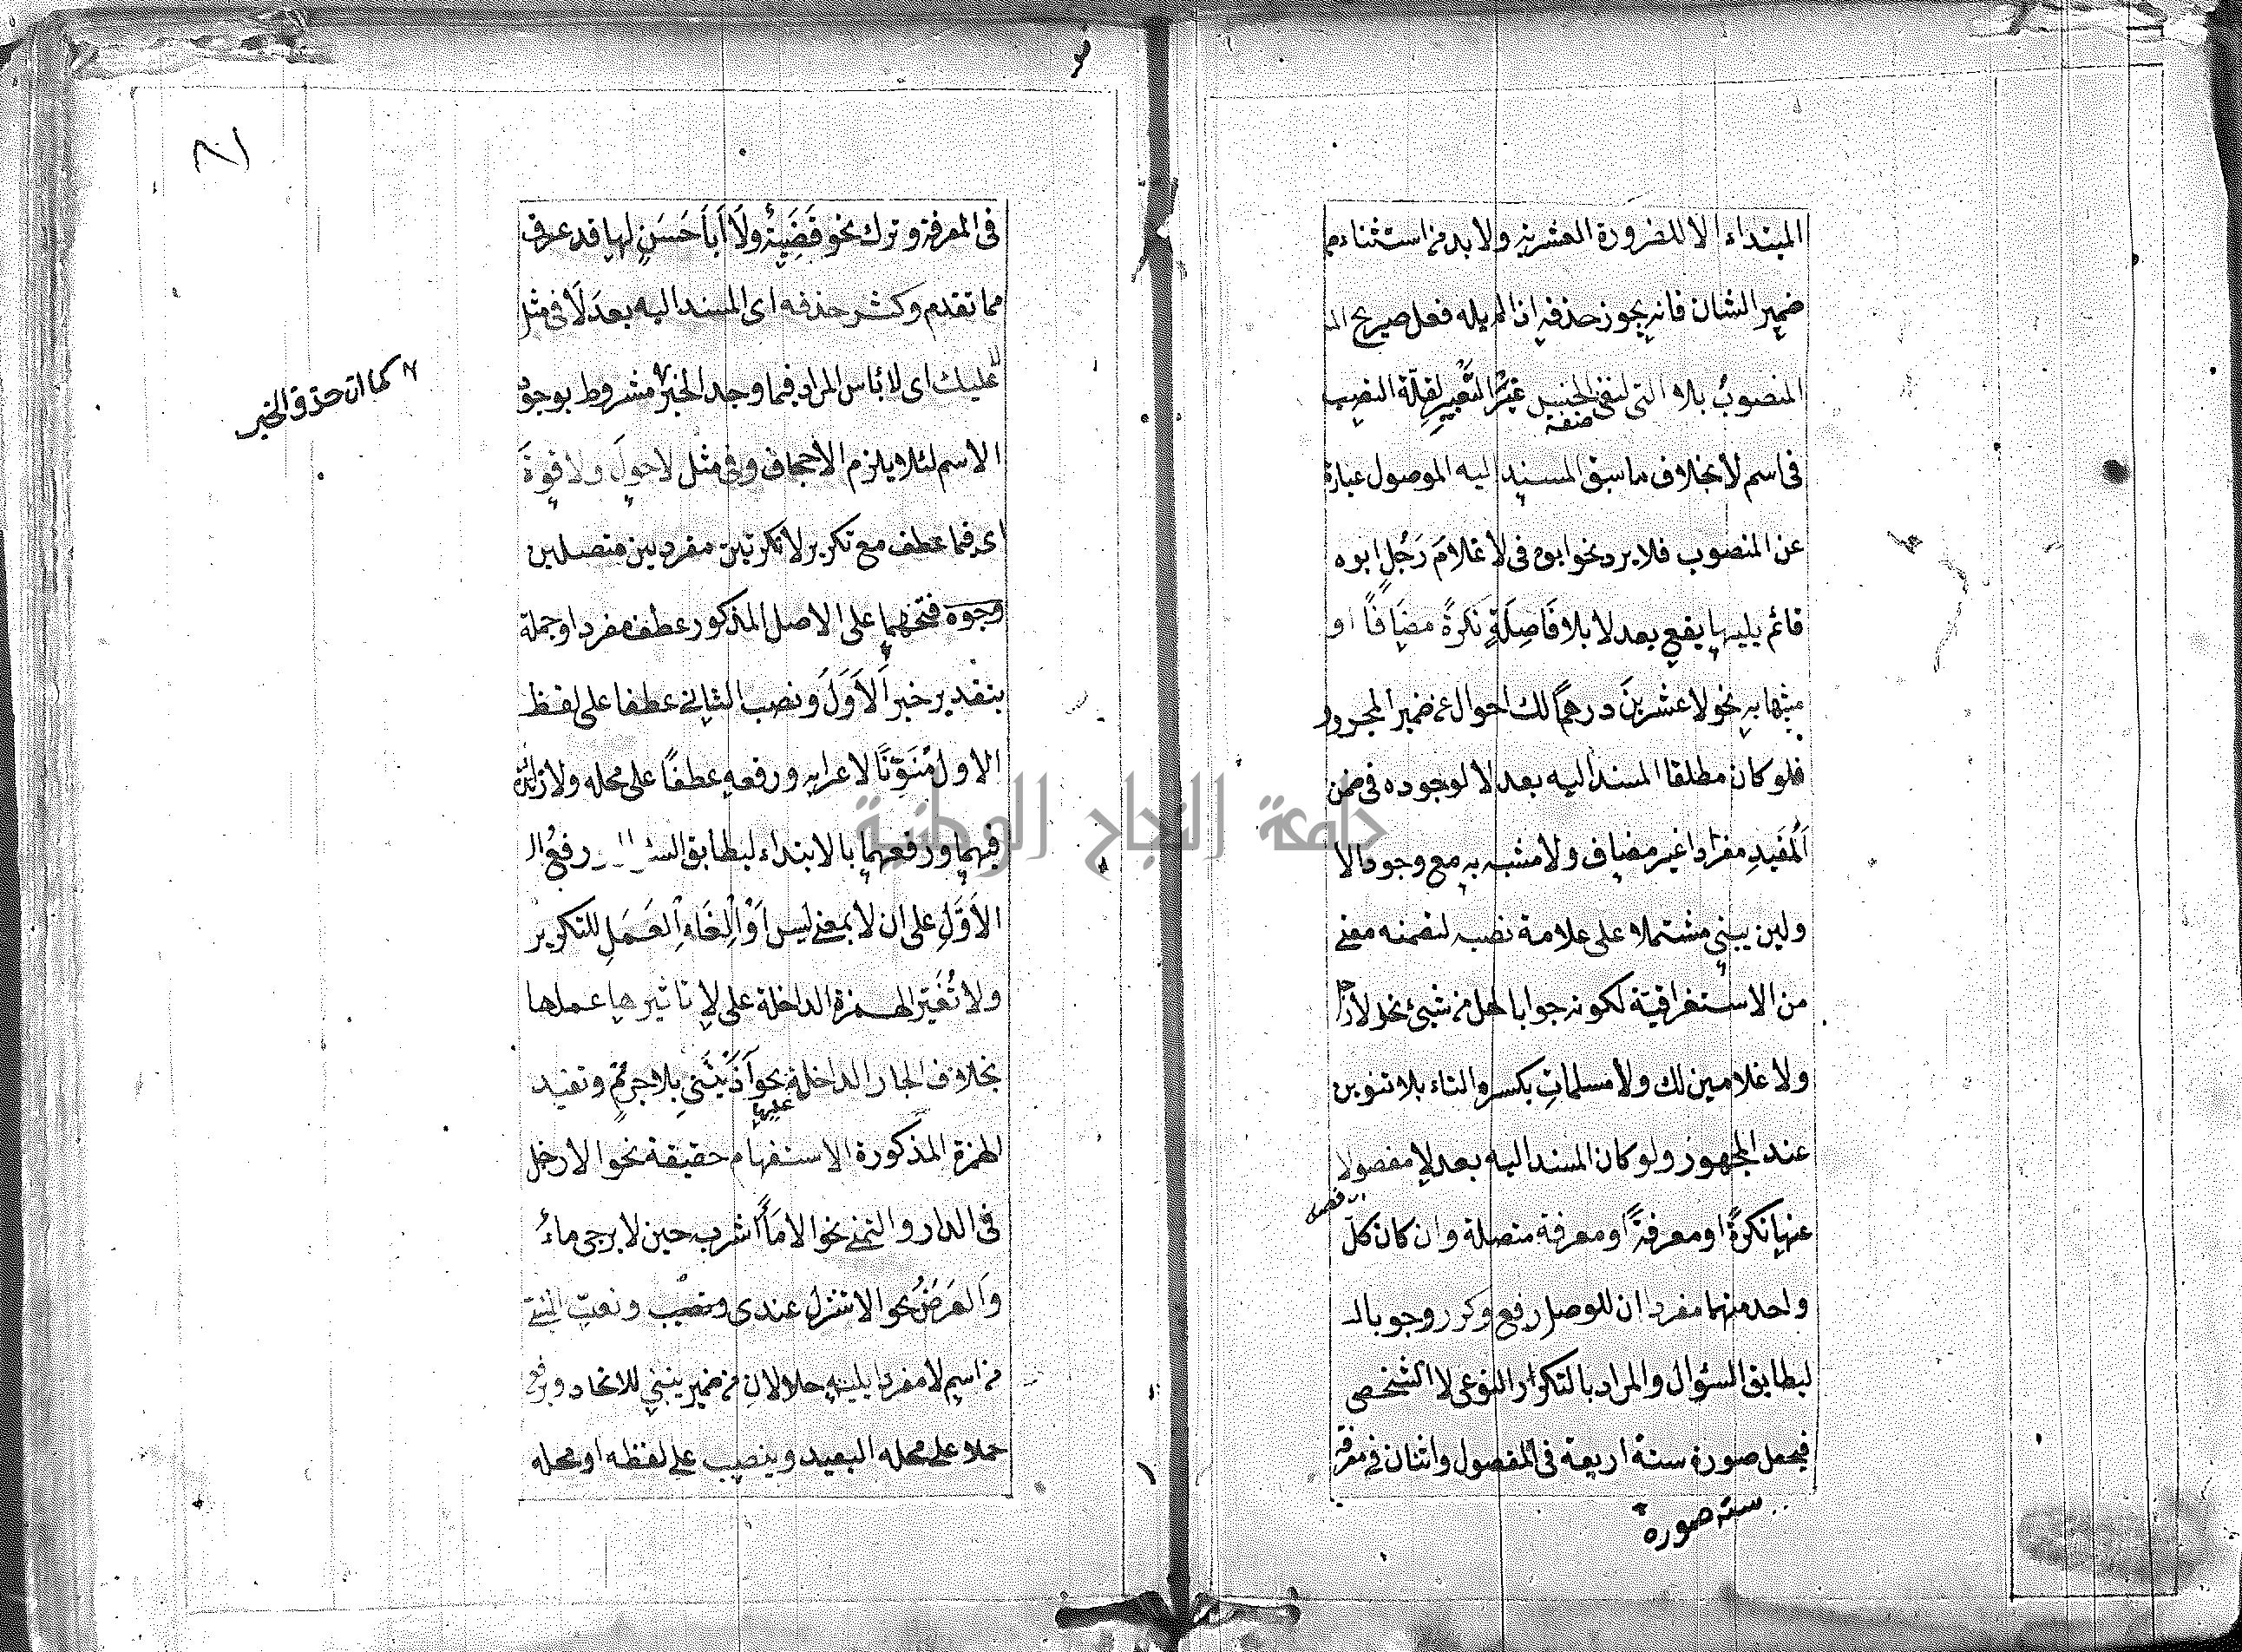 المبتداء الا للضرورة الشعرية ولا بد من استثناء
ضمير الشان فانه يجوز حذفه ان لم يله فعل صريح
المنصوب بلاء التي لنفى الجنس غير التعبير لقلة النصب
صفة
فى اسم لا بخلاف ما سبق المسند اليه الموصول عبارة
عن المنصوب فلا يرد نحو ابوه فى لا غلامَ رَجُلٍ ابوه
قائم يليها يقع بعد لا بلا فَاصِلَةٍ نكرةً مضَافًا او
مشبها به نحو لا عشرينَ درهمًا لك احوال عن ضمير المجرور
فلو كان مطلقا المسند اليه بعد لا لوجوده فى ضمن
اَلمُقَيدِ مفرَدا غير مضاف ولا مشبه به مع وجود الا
ولين يبنى مشتملا على علامة نصبه لتضمنه معنى
من الاستغراقية لكونه جوابا لهل من شيئ نحو لا
ولا غلامين لك ولا مسلماتِ بكسر التاء بلا تنوين
عند الجمهور ولو كان المسند اليه بعد لا مفصولا
عنها نكرةً او معرفةً او معرفة متصلة وان كان كلّ
واحد منهما مفردا ان للوصل رفع وكرر وجوبا
ليطابق السؤال والمراد بالتكرار النوعى لا الشخصى
فيحمل صورة ستة اربعة فى المفصول واثنان فى معرفة
ستة صورة
فى المعرفة وترك نحو قَضَيَةٌ ولَا اَبَا حَسَنٍ لها قد عرف
مما تقدم وكثر حذفه اى المسند اليه بعدَ لَا فى مثل
عليك اى لا باس المراد فيما وجد الخبر مشروط بوجود
كما ان حذف الخبر
الاسم لئلا يلزم الاجحاف وفى مثل لا حولَ ولا قوةَ
اى فيما عطف مع تكرير لا نكرتين مفردين متصلين
وجوه فتحهما على الاصل المذكور عطف مفرد او جملة
بتقدير خبر اَلاَوَلَ ونصب الثانى عطفا على لفظ
الاول مُنَوَّنًا لاعرابه ورفعه عطفًا على محله ولا زائدة
فيهما ورفعهما بالابتداء ليطابق رفعُ
الاَوَّلِ على ان لا بمعنى ليس اَوْ اِلْغَاءِ العَمَلِ للتكرير
ولا تُغَيّر الهمزة الداخلة على لا تاثيرها عملها
بخلاف الجار الداخلة نحو آذَيْتَنِي بلا جرمٍ وتفيد
عليها
الهمزة المذكورة الاستفهام حقيقة نحو الا رجل
فى الدار والتمنى نحو الا مَاًَ اشربه حين لا يرجى ماءُ
وَالعَرَضُ نحو الا تنزل عندى ونعت المبنى
من اسم لا مفردا يليه حالان من ضمير يبنى للاتحاد ويرفع
حملا على محله البعيد وينصب على لفظه او محله